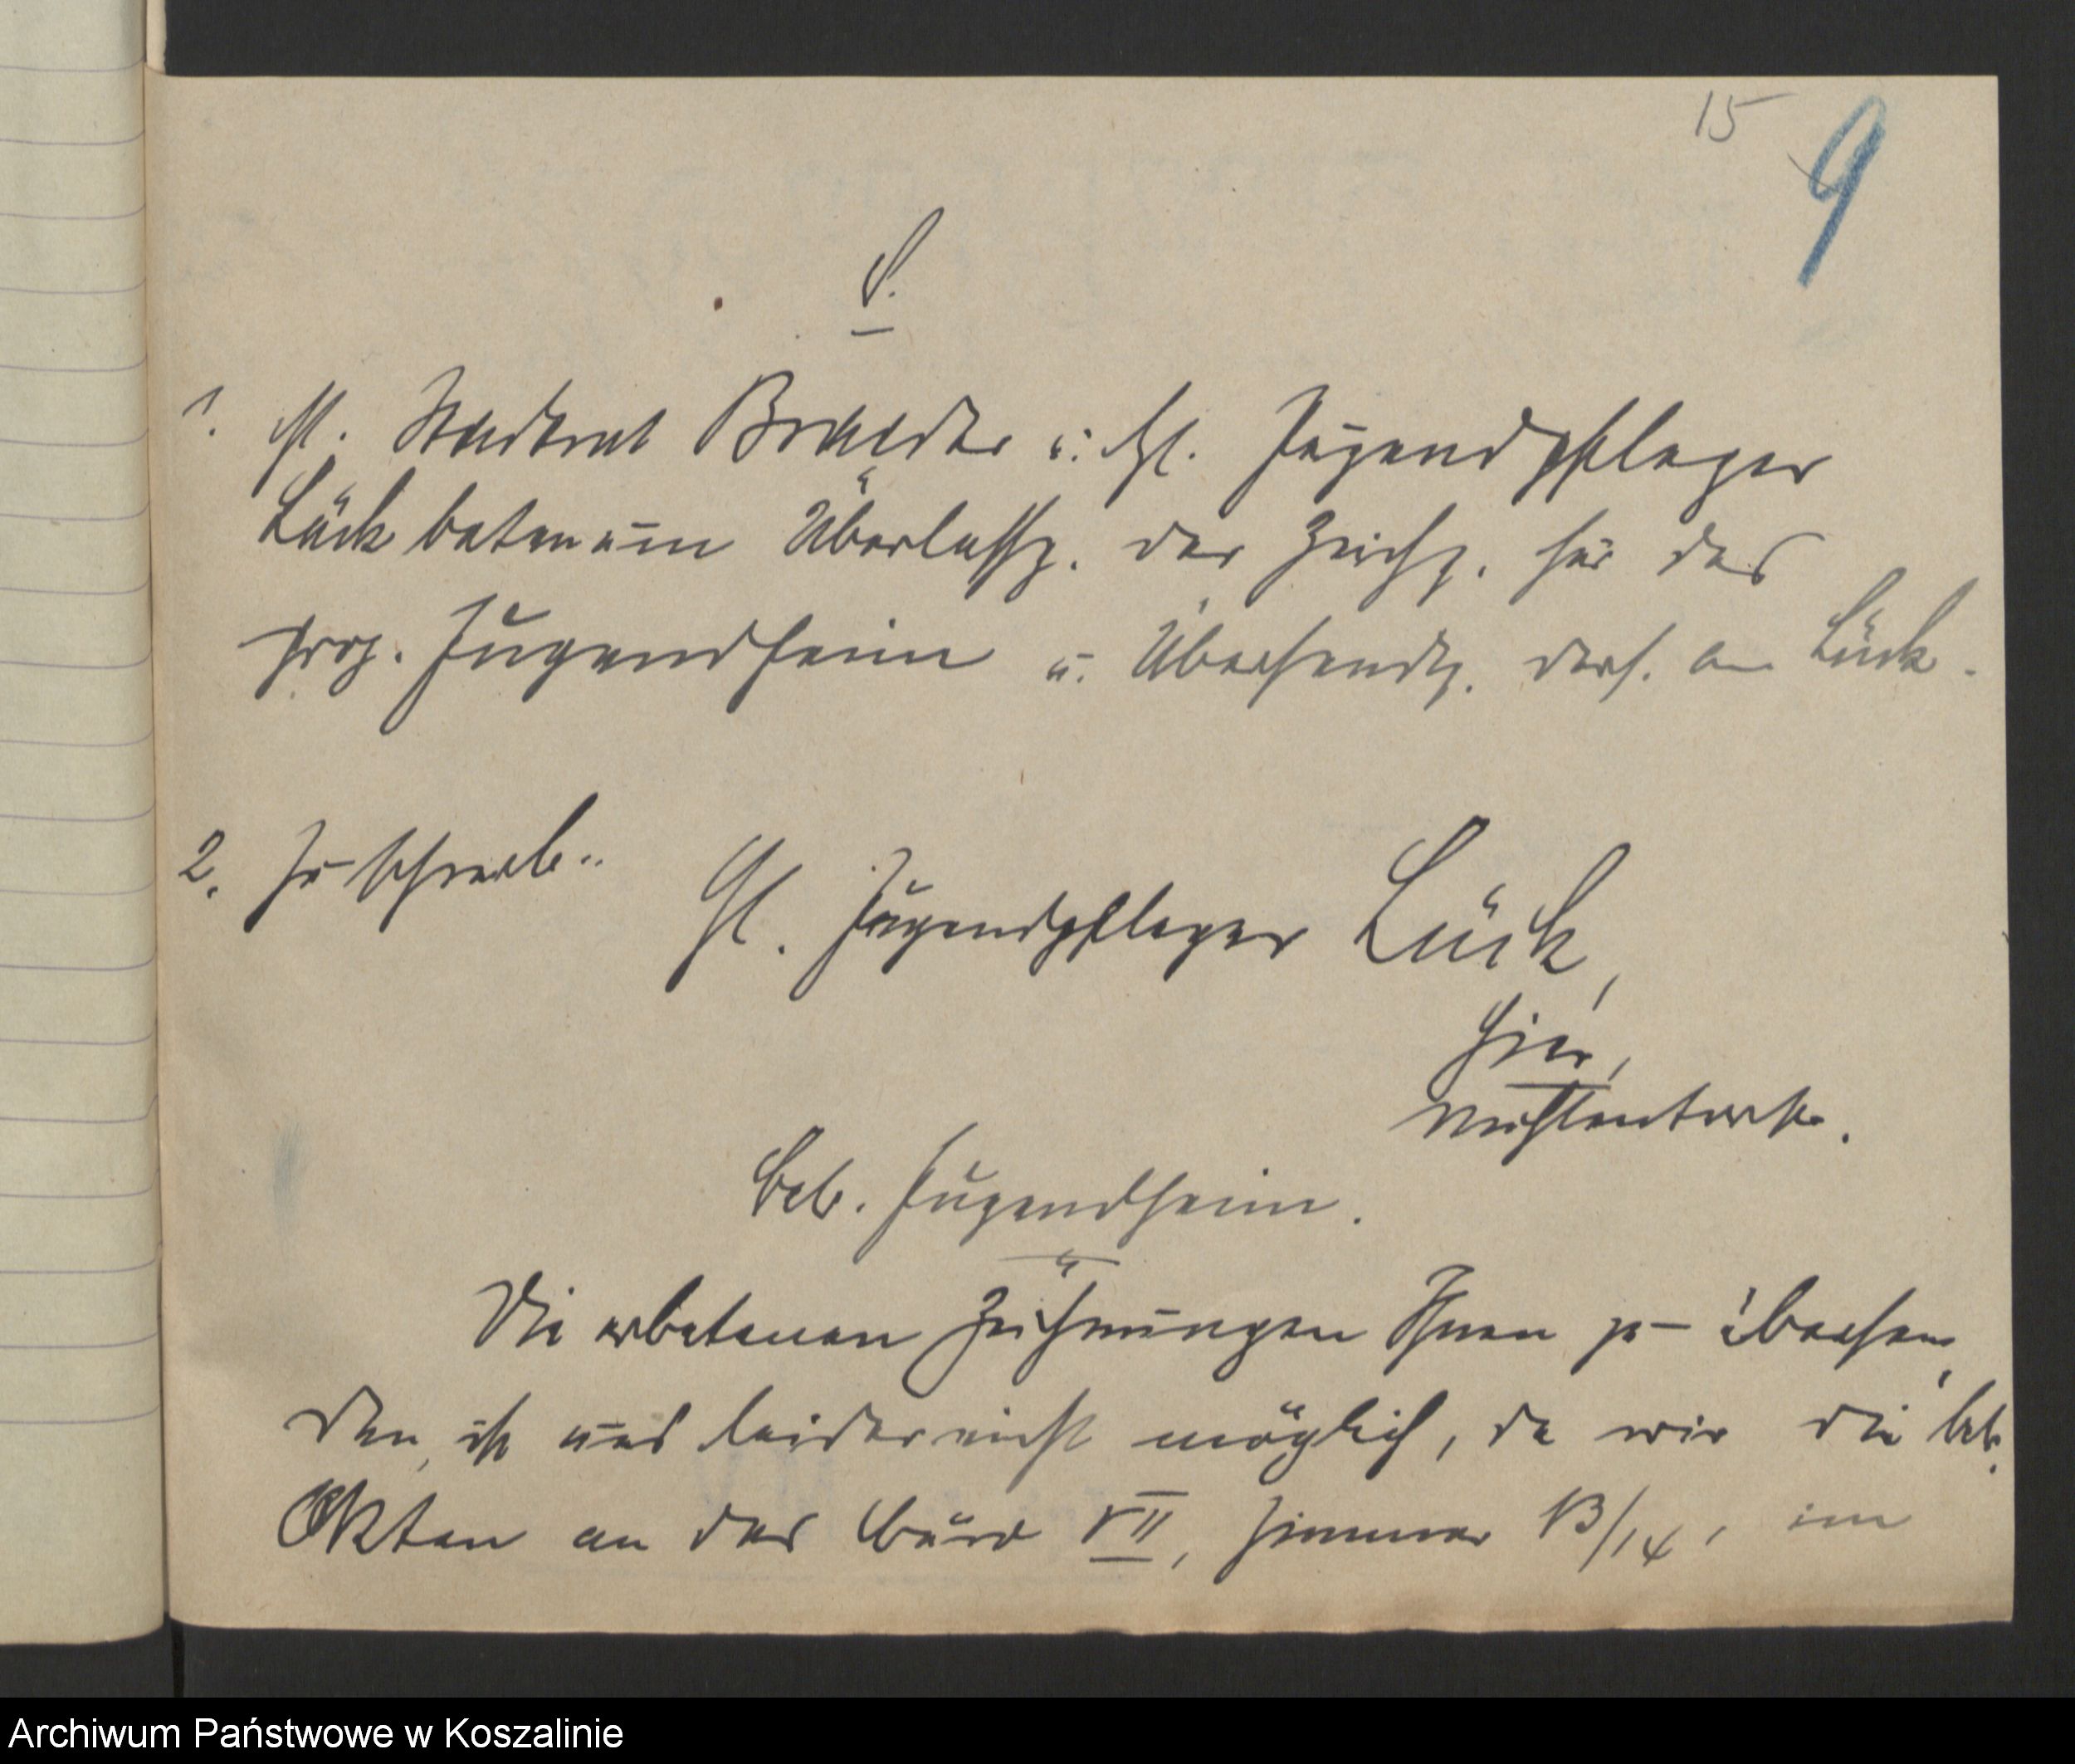 15 9
V.
1. H. Stadtrat u. H. Jugendpfleger
Lück baten um Überlassg. der Zeichg. für das
proj. Jugendheim u. Übersendg. ders. an Lück.
2. Zu schreib.:
H. Jugendpfleger Lück,
Hier,
Betr. Jugendheim.
Die erbetenen Zeichnungen Ihnen zu übersen-
den, ist uns leider nicht möglich, da wir die betr.
Akten an das Büro VII, Zimmer 13/14, im
Archiwum Państwowe w Koszalinie